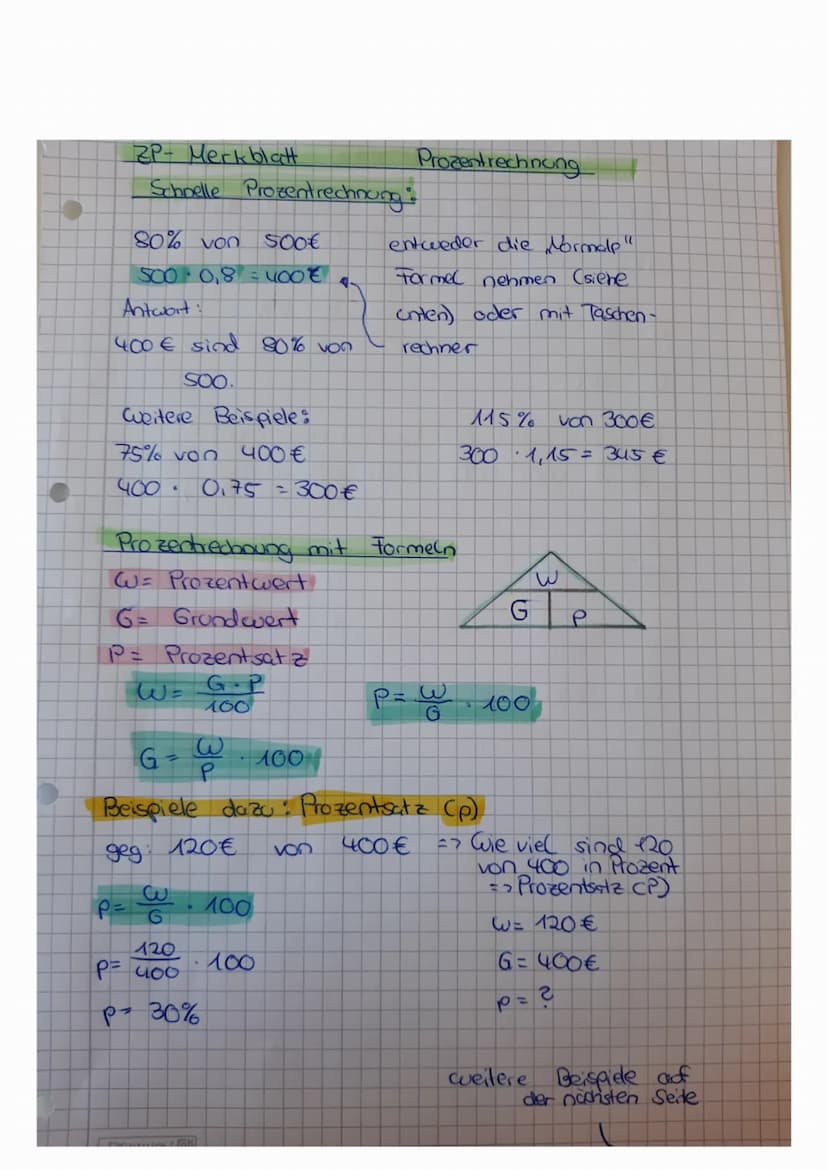 ZP- Merkblatt Prozentrechnung
Schnelle Prozentrechnung:
80% von 500€
500 · 0,8 = 400€
Antwort:
400€ sind 80% von
500.
entweder die „Normale"
Formel nehmen (siehe
unten) oder mit Taschen-
rechner
Weitere Beispiele:
75% von 400€
400 · 0,75 = 300€
115% von 300€
300 · 1,15 = 345€
Prozentrechnung mit Formeln
W= Prozentwert
G= Grundwert
P= Prozentsatz
W
G P
W= G·P/100
P= W/G · 100
G= W/P · 100
Beispiele dazu: Prozentsatz (p)
geg: 120€ von 400€ => Wie viel sind 120
von 400 in Prozent
=> Prozentsatz (P)
p= W/G · 100
p= 120/400 · 100
p= 30%
W= 120€
G= 400€
p= ?
weitere Beispiele auf
der nächsten Seite